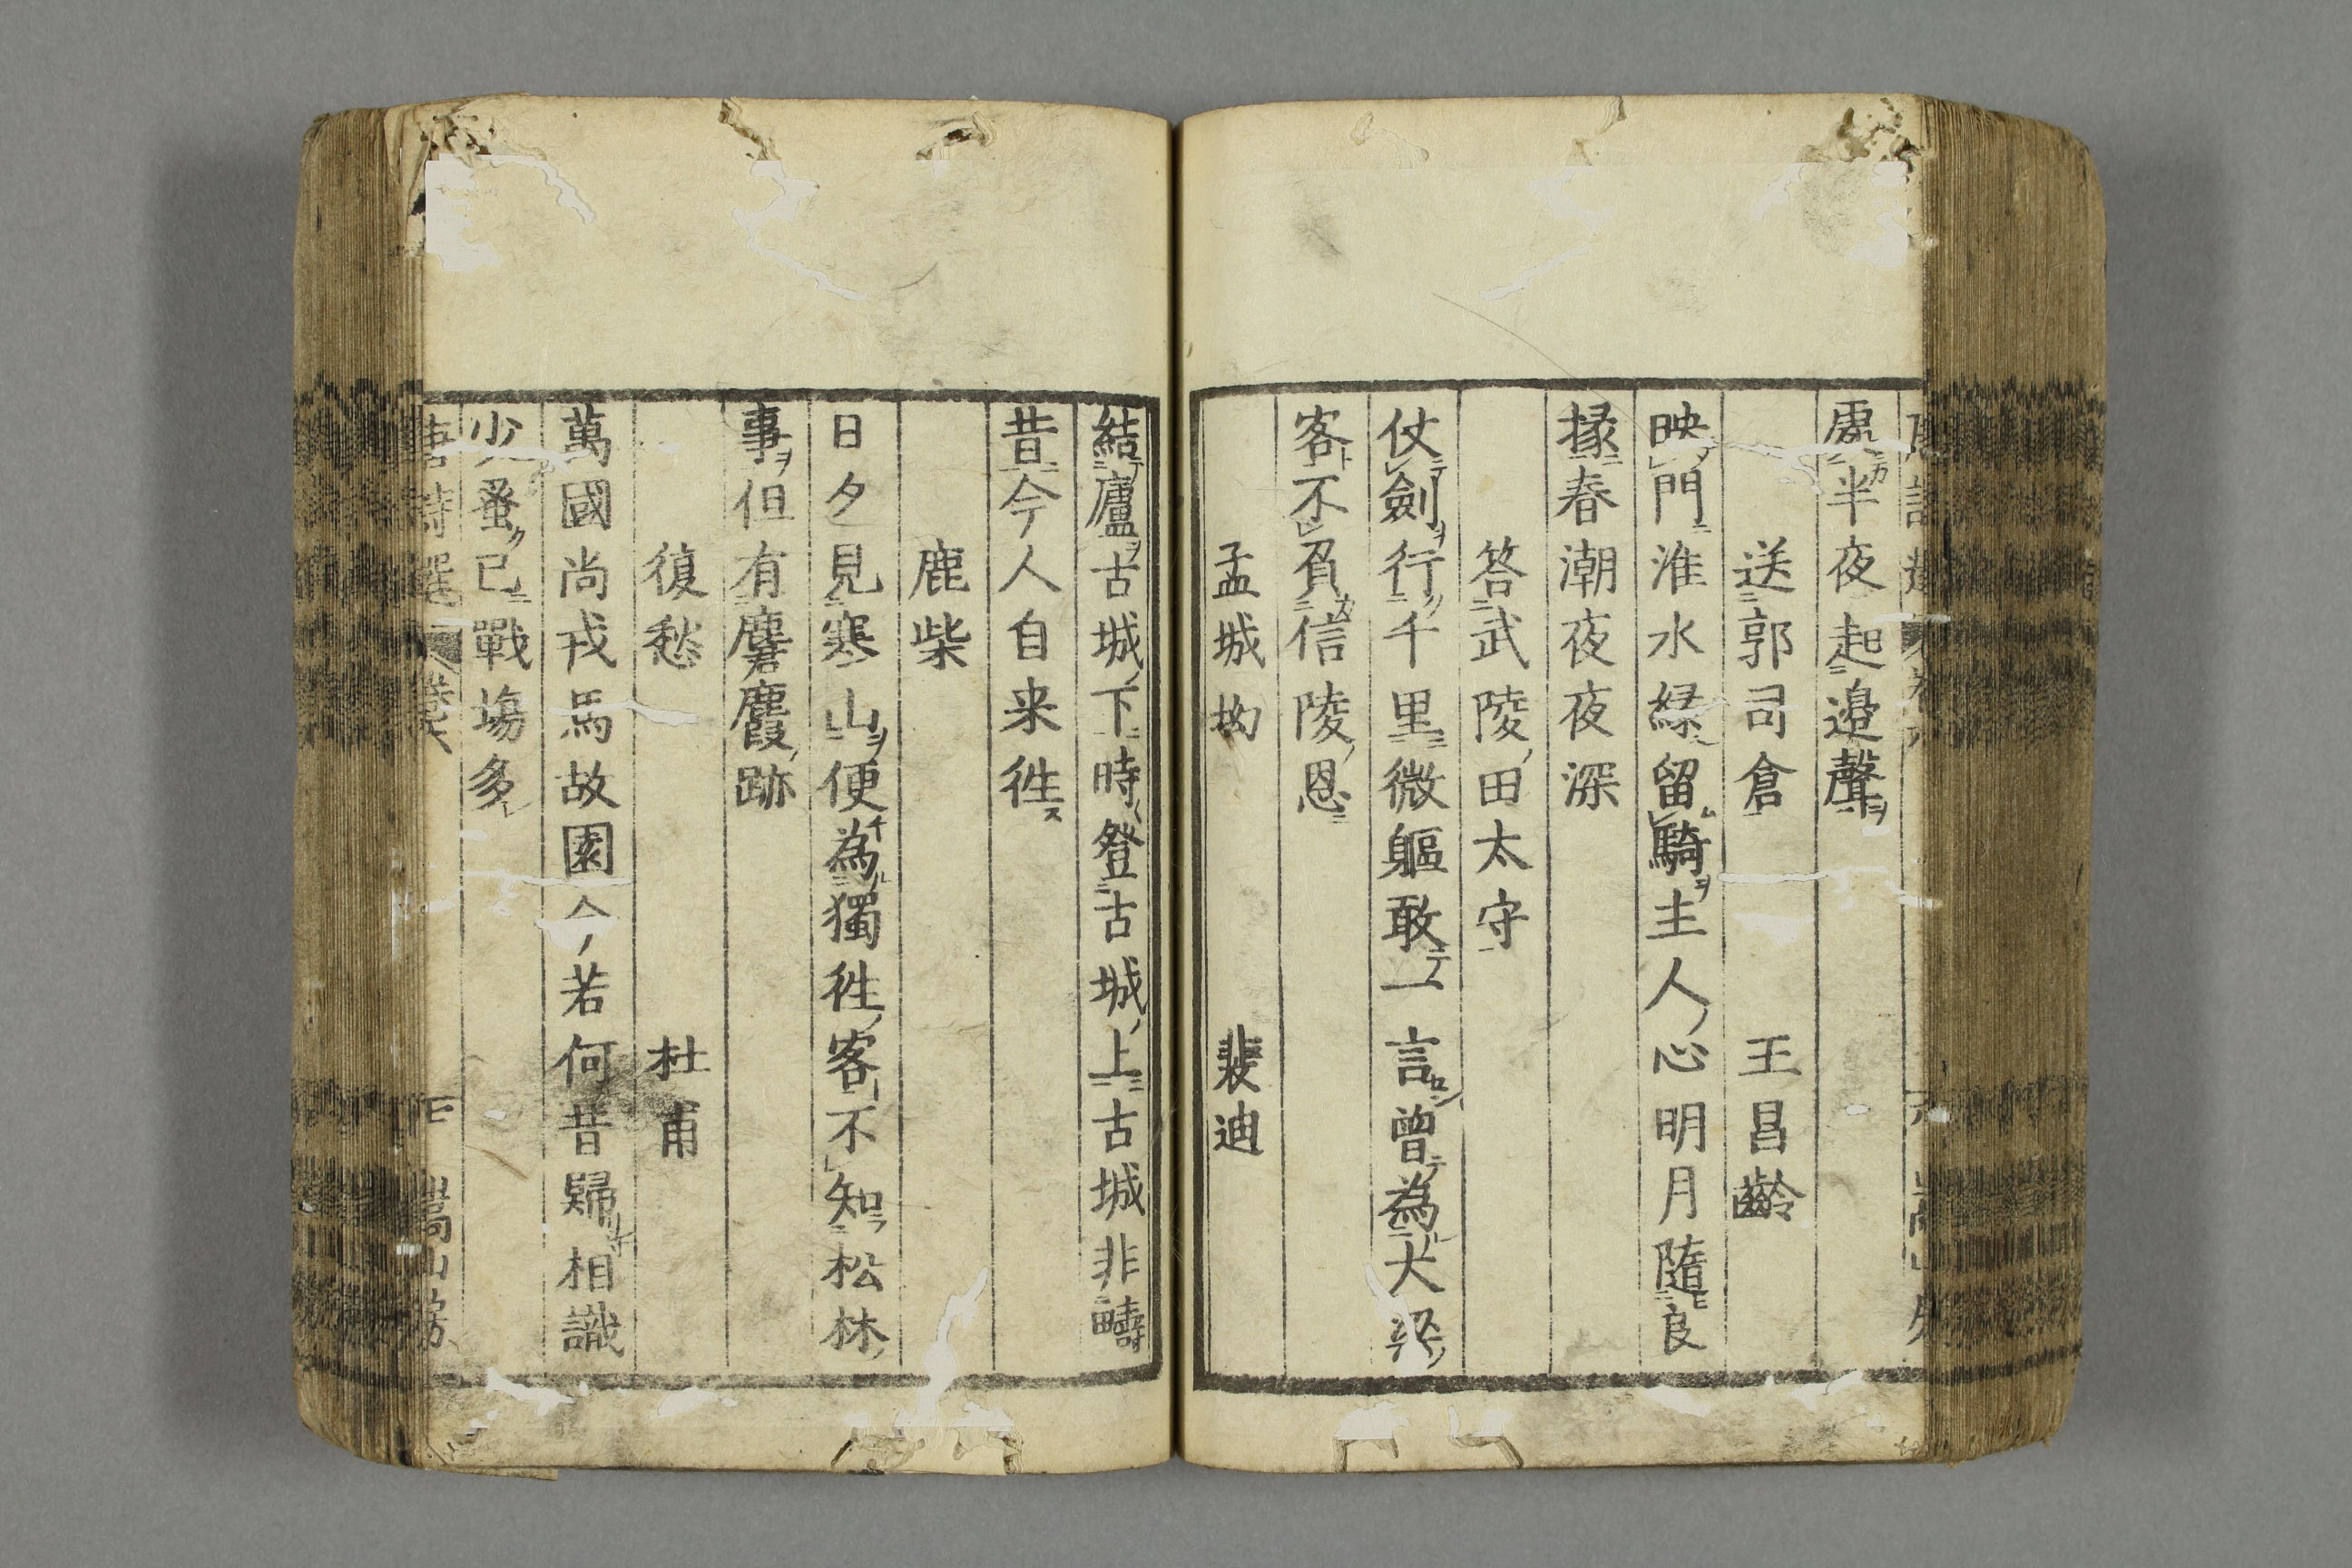 處半夜起邉聲
送郭司倉　王昌齡
映門淮水緑留騎主人心明月隨良
掾春潮夜夜深
答武陵田太守
仗劍行千里微軀敢一言曽為大梁
客不負信陵恩
孟城坳　裴迪
結廬古城下時登古城上古城非疇
昔今人自来徃
鹿柴
日夕見寒山便為獨徃客不知松林
事但有麏麚跡
復愁　杜甫
萬國尚戎馬故園今若何昔歸相識
少蚤已戰塲多
唐詩選 卷六 嵩山房